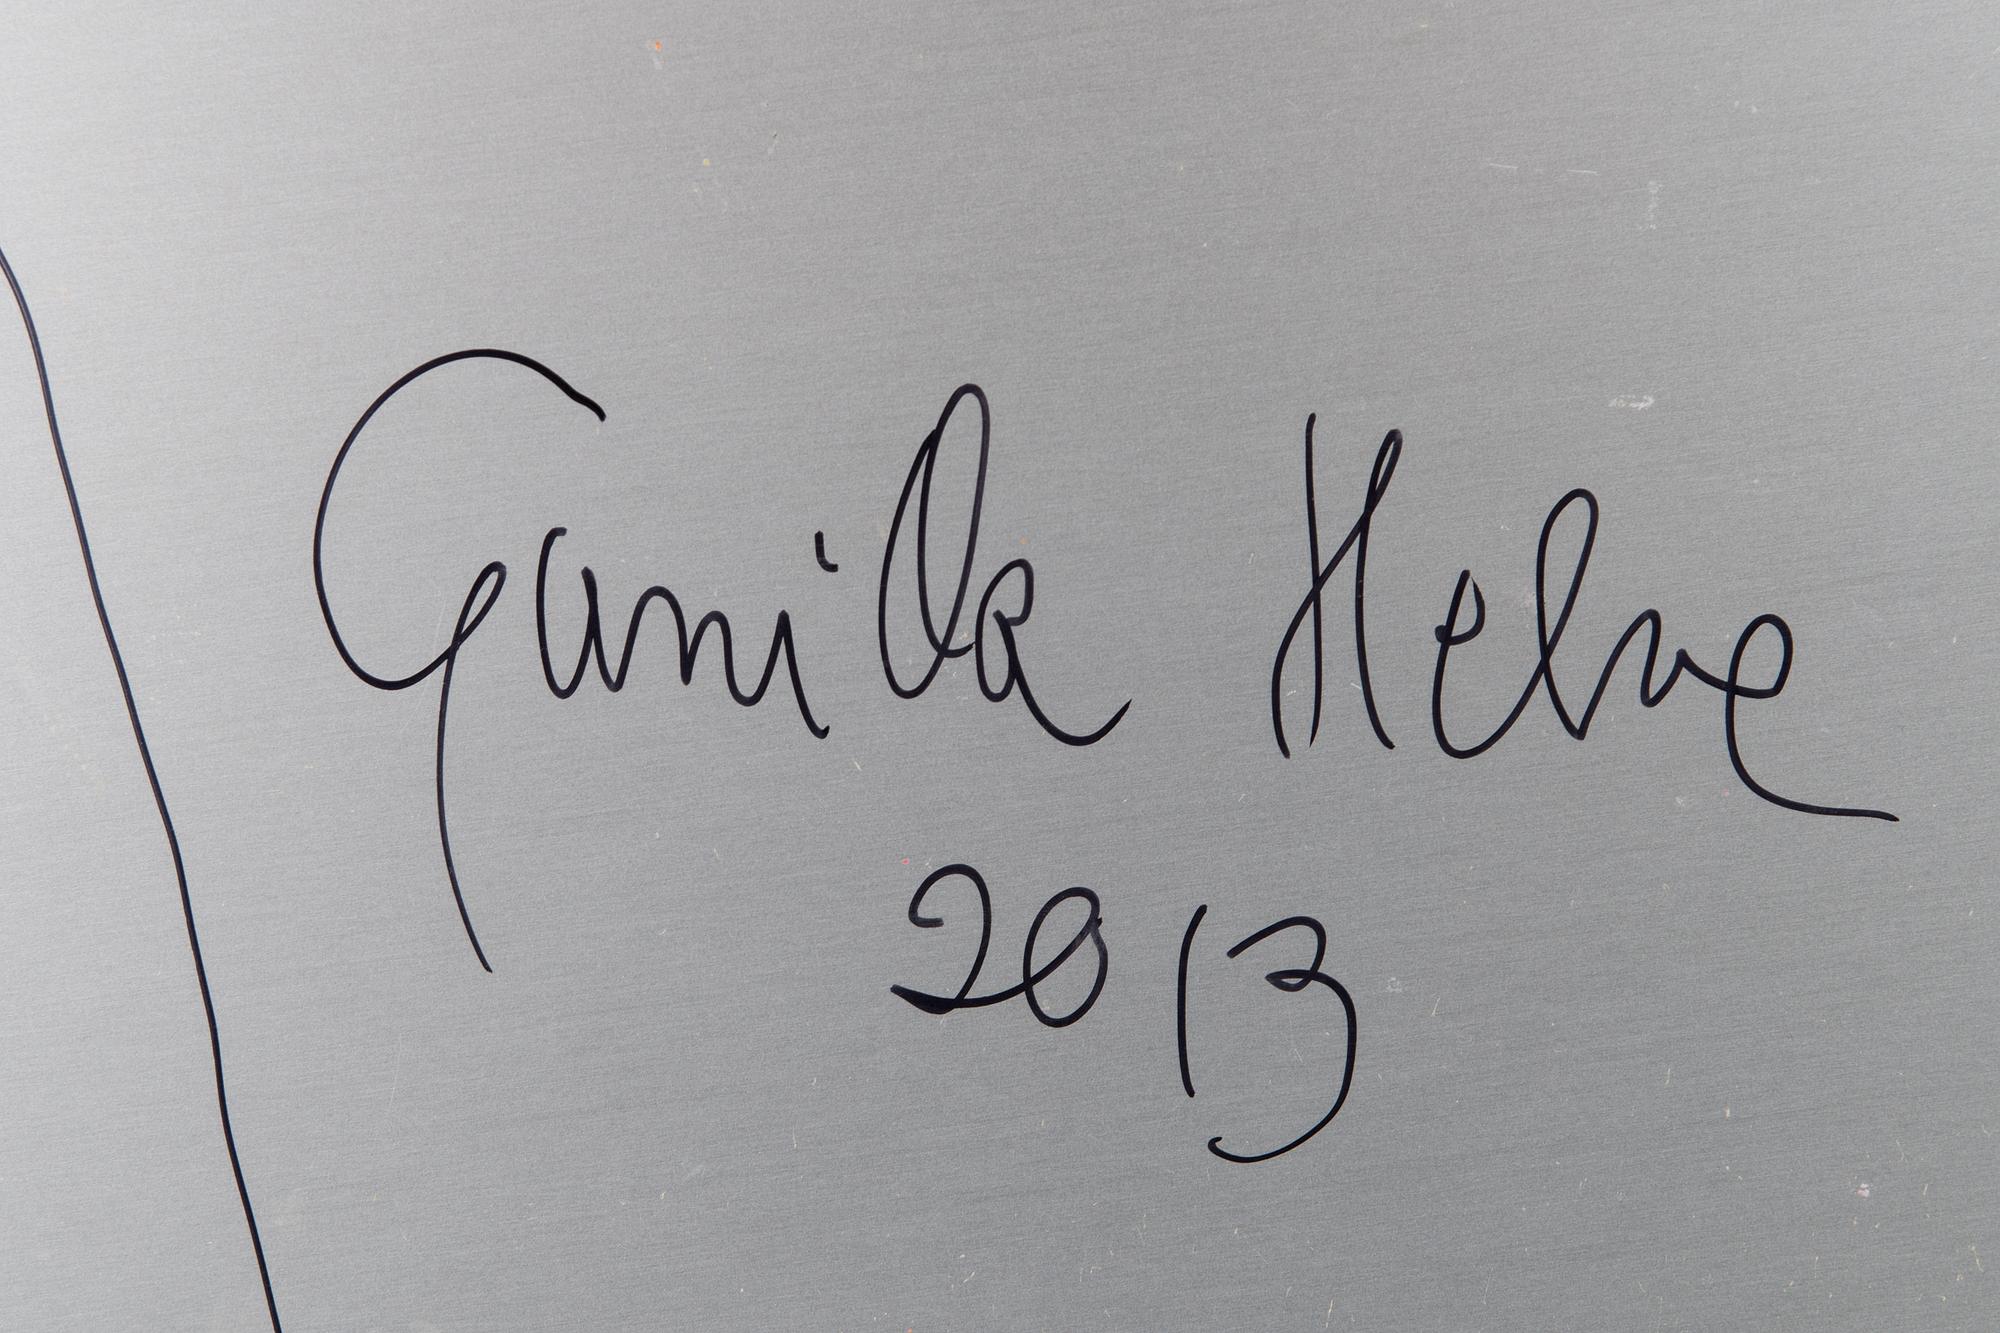 Gunilla Helve
2013